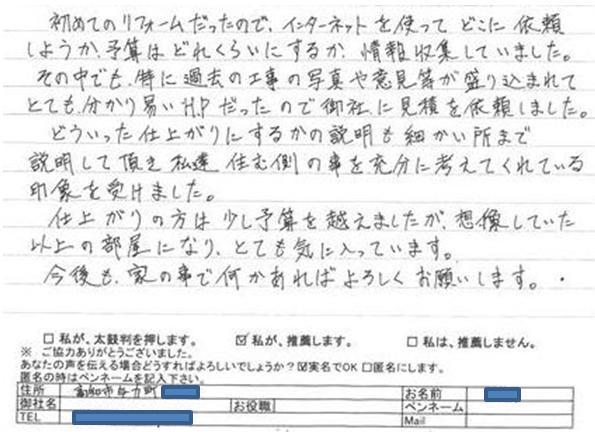 初めてのリフォームだったので、インターネットを使って どこに 依頼
しようか、予算は どれくらいにするか、情報収集していました。
その中でも、特に過去の工事の写真や意見等が盛り込まれて
とても、分かり易いH.Pだったので御社に見積を依頼しました。
どういった仕上がりにするかの説明も細かい所まで
説明して頂き私達 住む側の事を充分に考えてくれている
印象を受けました。
仕上がりの方は少し予算を越えましたが、想像していた
以上の部屋になり、とても気に入っています。
今後も、家の事で何かあればよろしくお願いします。
□ 私が、太鼓判を押します。 ☑ 私が、推薦します。 □ 私は、推薦しません。
※ ご協力ありがとうございました。
あなたの声を伝える場合どうすればよろしいでしょうか?☑実名でOK □匿名にします。
匿名の時はペンネームを記入下さい。
住所 高知市与力町 お名前
御社名 お役職 ペンネーム
TEL Mail